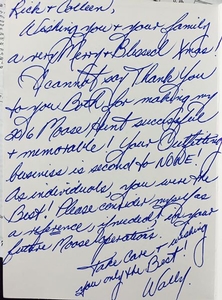 Rick & Colleen,
Wishing you & your family
a very Merry & Blessed Xmas!
I cannot say Thank You
to you Both for making my
2016 Moose Hunt successful
& memorable! Your Outfitting
business is second to NONE!
As individuals, you were the
Best! Please consider myself as
a reference, if needed in your
future Moose operations.
Take Care & wishing
you only the Best!
Wally